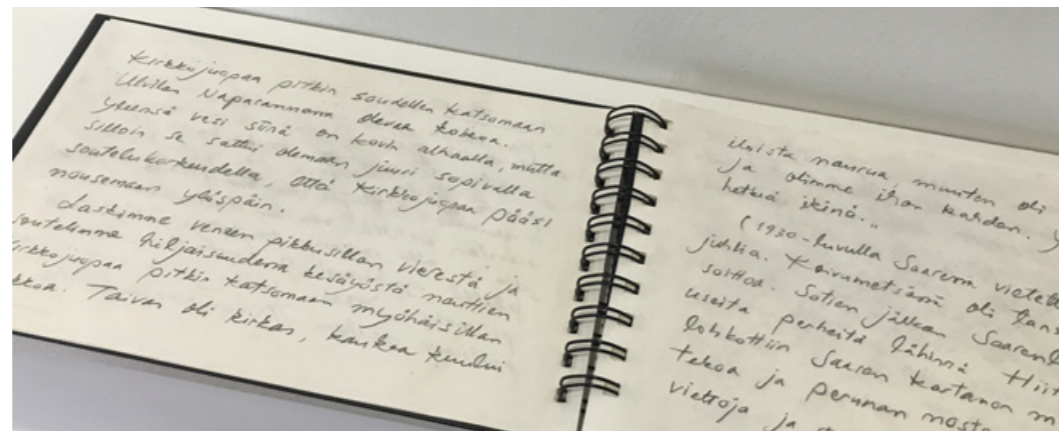 Kirkkojuopaa pitkin soudellen katsomaan
Ulvilan Naparannana olevaa kokkoa.
Yleensä vesi siinä on kovin alhaalla, mutta
silloin se sattui olemaan juuri sopivalla
soutelukorkeudella, että Kirkkojuopaa pääsi
nousemaan ylöspäin.
Laskimme veneen pikkusillan vierestä ja
soutelimme hiljaisuudessa kesäyöstä nauttien
Kirkkojuopaa pitkin katsomaan myöhäisillan
kokkoa. Taivas oli kirkas, kaukaa kuului
iloista naurua, muuten oli
ja olimme ihan kahden.
hetkiä ikinä."
(1930-luvulla Saaressa
juhlia. Koivumetsässä oli
soittoa. Sotien jälkeen
useita perheitä lähinnä
lohkottiin Saaren kartanon
tekoa ja perunan
viettoja ja